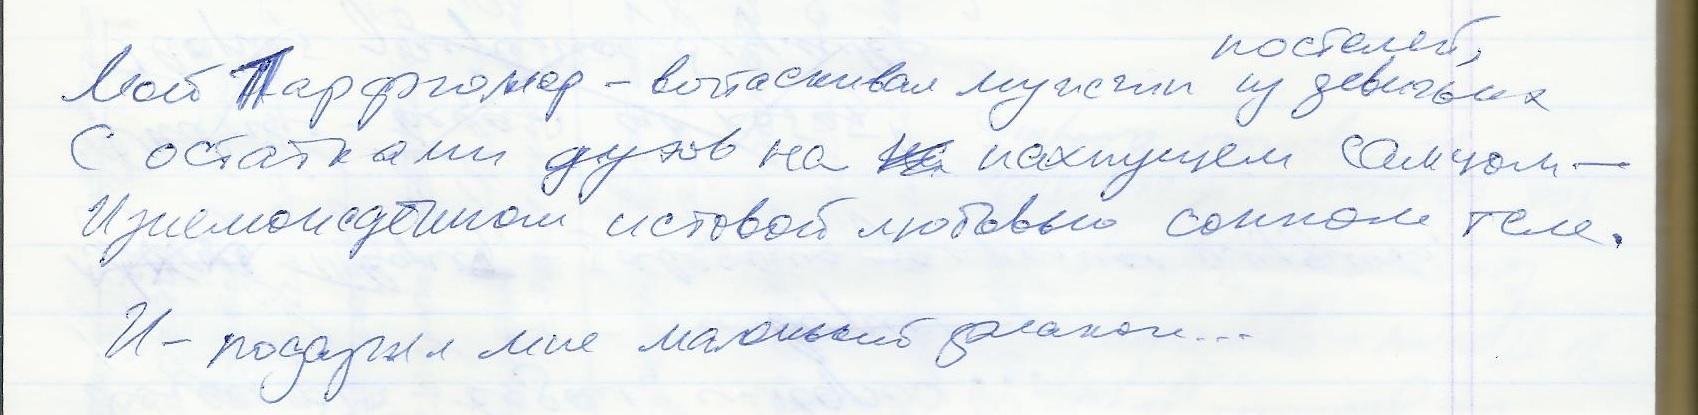 постелей,
Мой Парфюмер – вытаскивал мужчин из девичьих
С остатками духов на пахнущем самцом –
Изнемождённом истовой любовью сонном теле.
И – подарил мне маленький флакон...